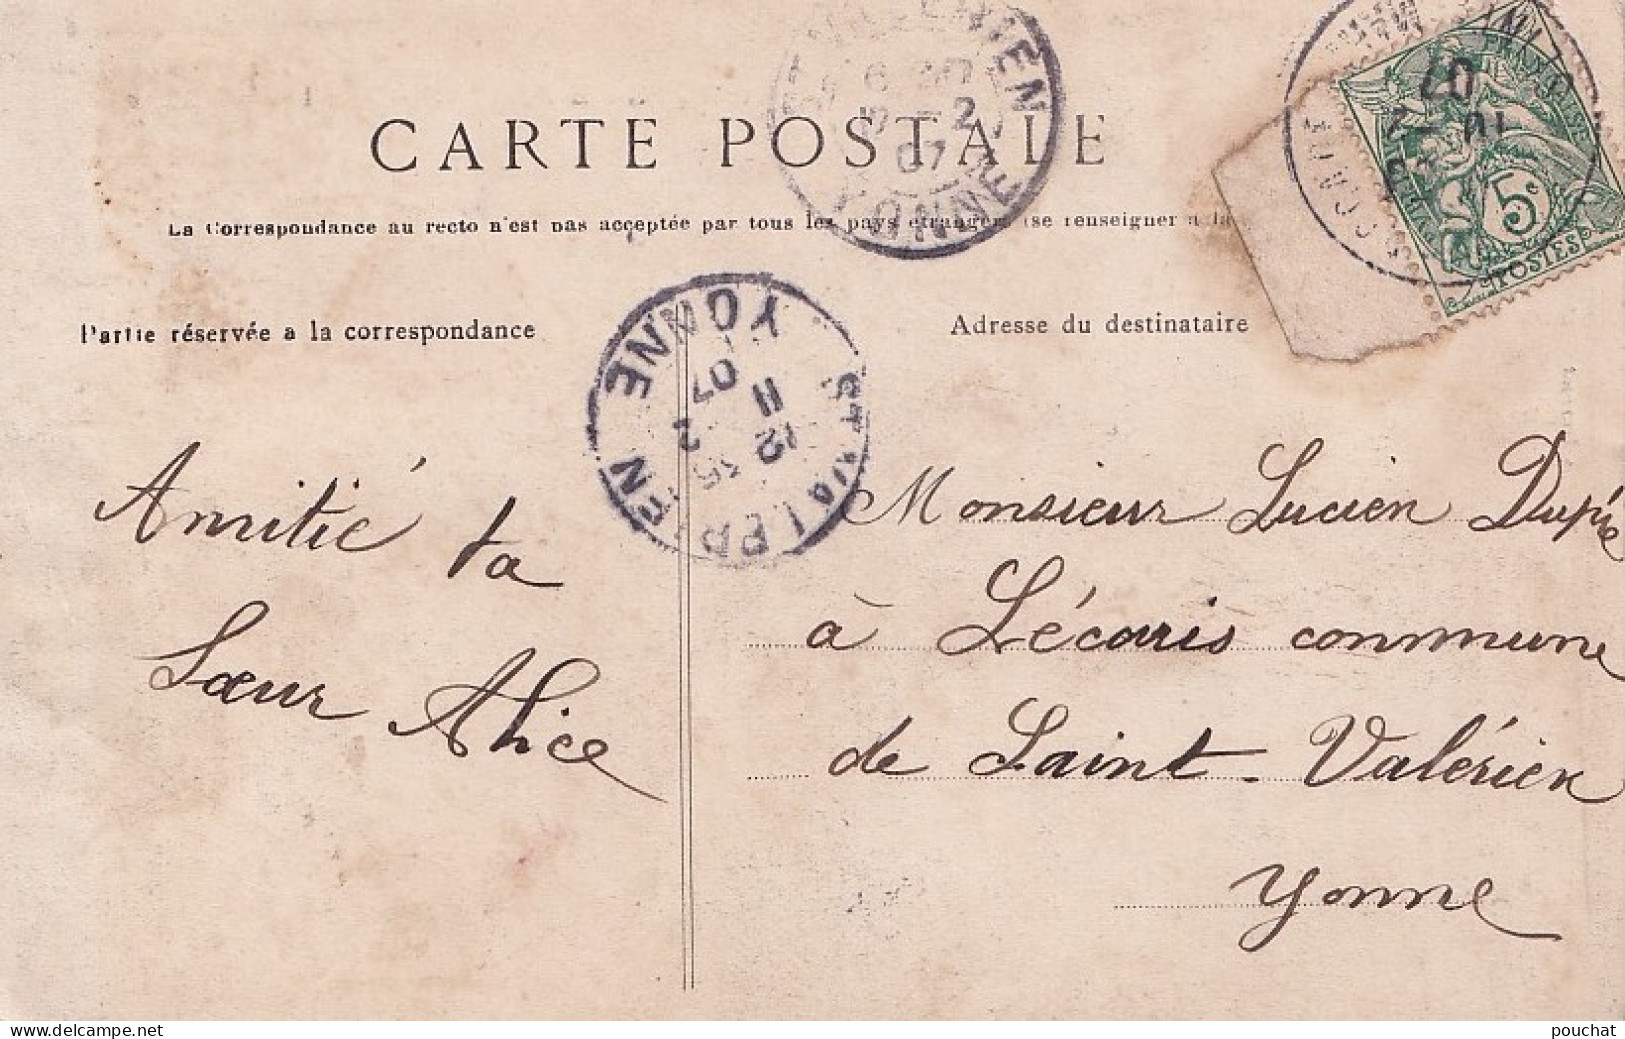 CARTE POSTALE
La Correspondance au recto n'est pas acceptée par tous les pays étrangers (se renseigner a la
Partie réservée a la correspondance
Adresse du destinataire
YONNE
07
YONNE
07
11
12
2
35
St VALERIEN
07
5c
POSTES
Amitié ta
Sœur Alice
Monsieur Lucien Dupré
à Lécaris commune
de Saint-Valérien
Yonne
www.delcampe.net
pouchat